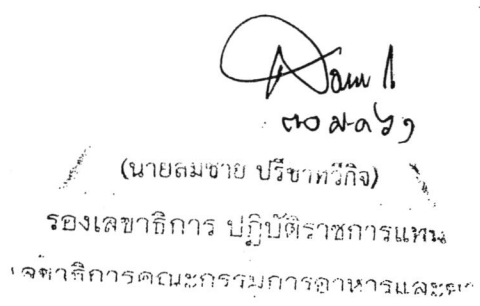 ๓๐ ม.ค ๖๑
(นายสมชาย ปรีชาทวีกิจ)
รองเลขาธิการ ปฏิบัติราชการแทน
เลขาธิการคณะกรรมการอาหารและยา